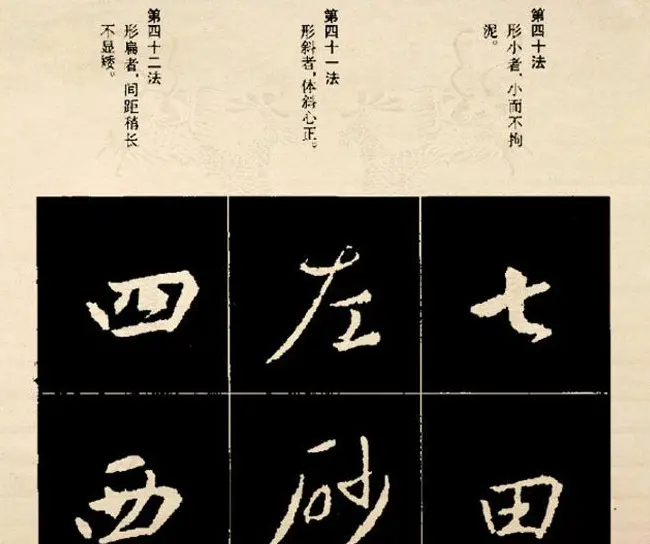 第四十法
形小者，小而不拘
泥。
七
田
第四十一法
形斜者，体斜心正。
左
砂
第四十二法
形扁者，间距稍长
不显矮。
四
西